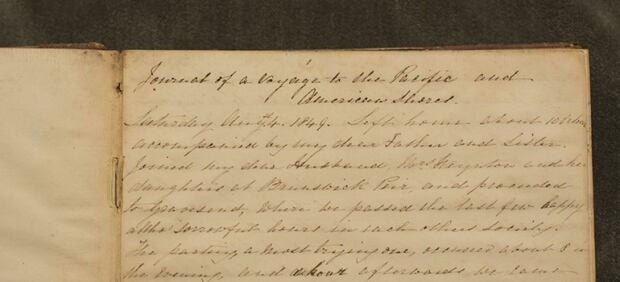 Journal of a Voyage to the Pacific and
American Shores.
Saturday Augst 4. 1849. Left home about
accompanied by my dear Father and Sister.
Joined my dear Husband, Mrs and her
daughters at Brunswick Pier, and proceeded
to Gravesend, where we passed the last few happy
altho' sorrowful hours in each others society.
The parting, a most trying one, occured about 8 in
the Evening, and afterwards we came